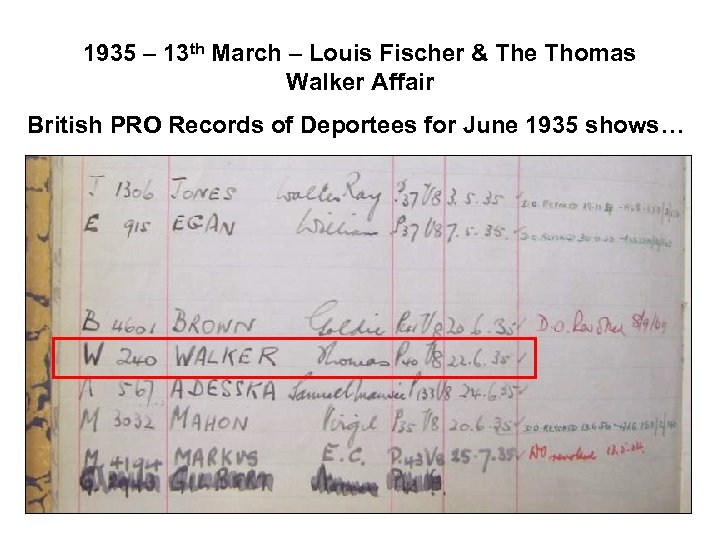 1935 – 13th March – Louis Fischer & The Thomas
Walker Affair
British PRO Records of Deportees for June 1935 shows…
J 1306 JONES Walter Ray P37 V8 3.5.35 ✓ D.O. REVOKED
E 915 EGAN William P37 V8 7.5.35 ✓ D.O. REVOKED
B 4601 BROWN Goldie V8 20.6.35 ✓ D.O. Revoked
W 240 WALKER Thomas P40 V8 22.6.35 ✓
A 567 ADESSKA Samuel P133 V8 24.6.35 ✓
M 3032 MAHON Virgil P35 V8 20.6.35 ✓ D.O. REVOKED
M 4194 MARKUS E.C. P.43 V8 25.7.35 ✓ DO revoked
G. 2943 GILBERT